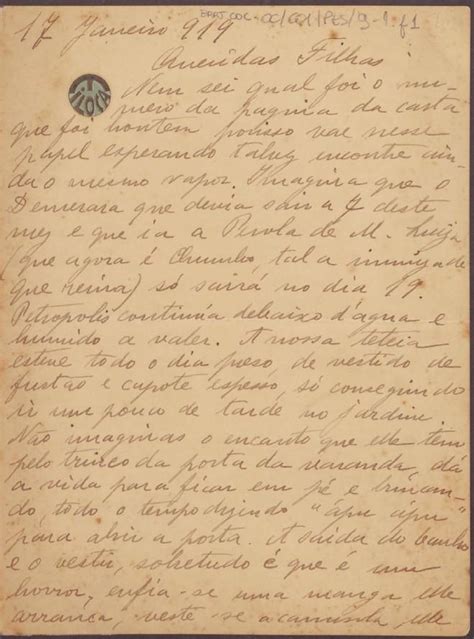 17 Janeiro 919
Queridas Filhas
Nem sei qual foi o nu-
mero da pagina da carta
que foi hontem por isso vae nesse
papel esperando talvez encontre ain-
da o mesmo vapor. Imagina que o
Demerara que devia sair a 7 deste
mez e que ia a Perola de M. Luiza
(que agora é Chumbo, tal a
que reina) só sairá no dia 19.
Petropolis continúa debaixo d'agua e
humido a valer. A nossa teteia
esteve todo o dia preso, de vestido de
fustão e capote espesso, só conseguindo
ir um pouco de tarde no jardim
Não imaginas o encanto que elle tem
pelo trinco da porta da varanda, dá
a vida para ficar em pé e brincan-
do, todo o tempo dizendo "apu apu"
para abrir a porta. A saida do banho
e o vestir, sobretudo é que é um
horror, enfia-se uma manga elle
arranca, veste-se a camisola elle